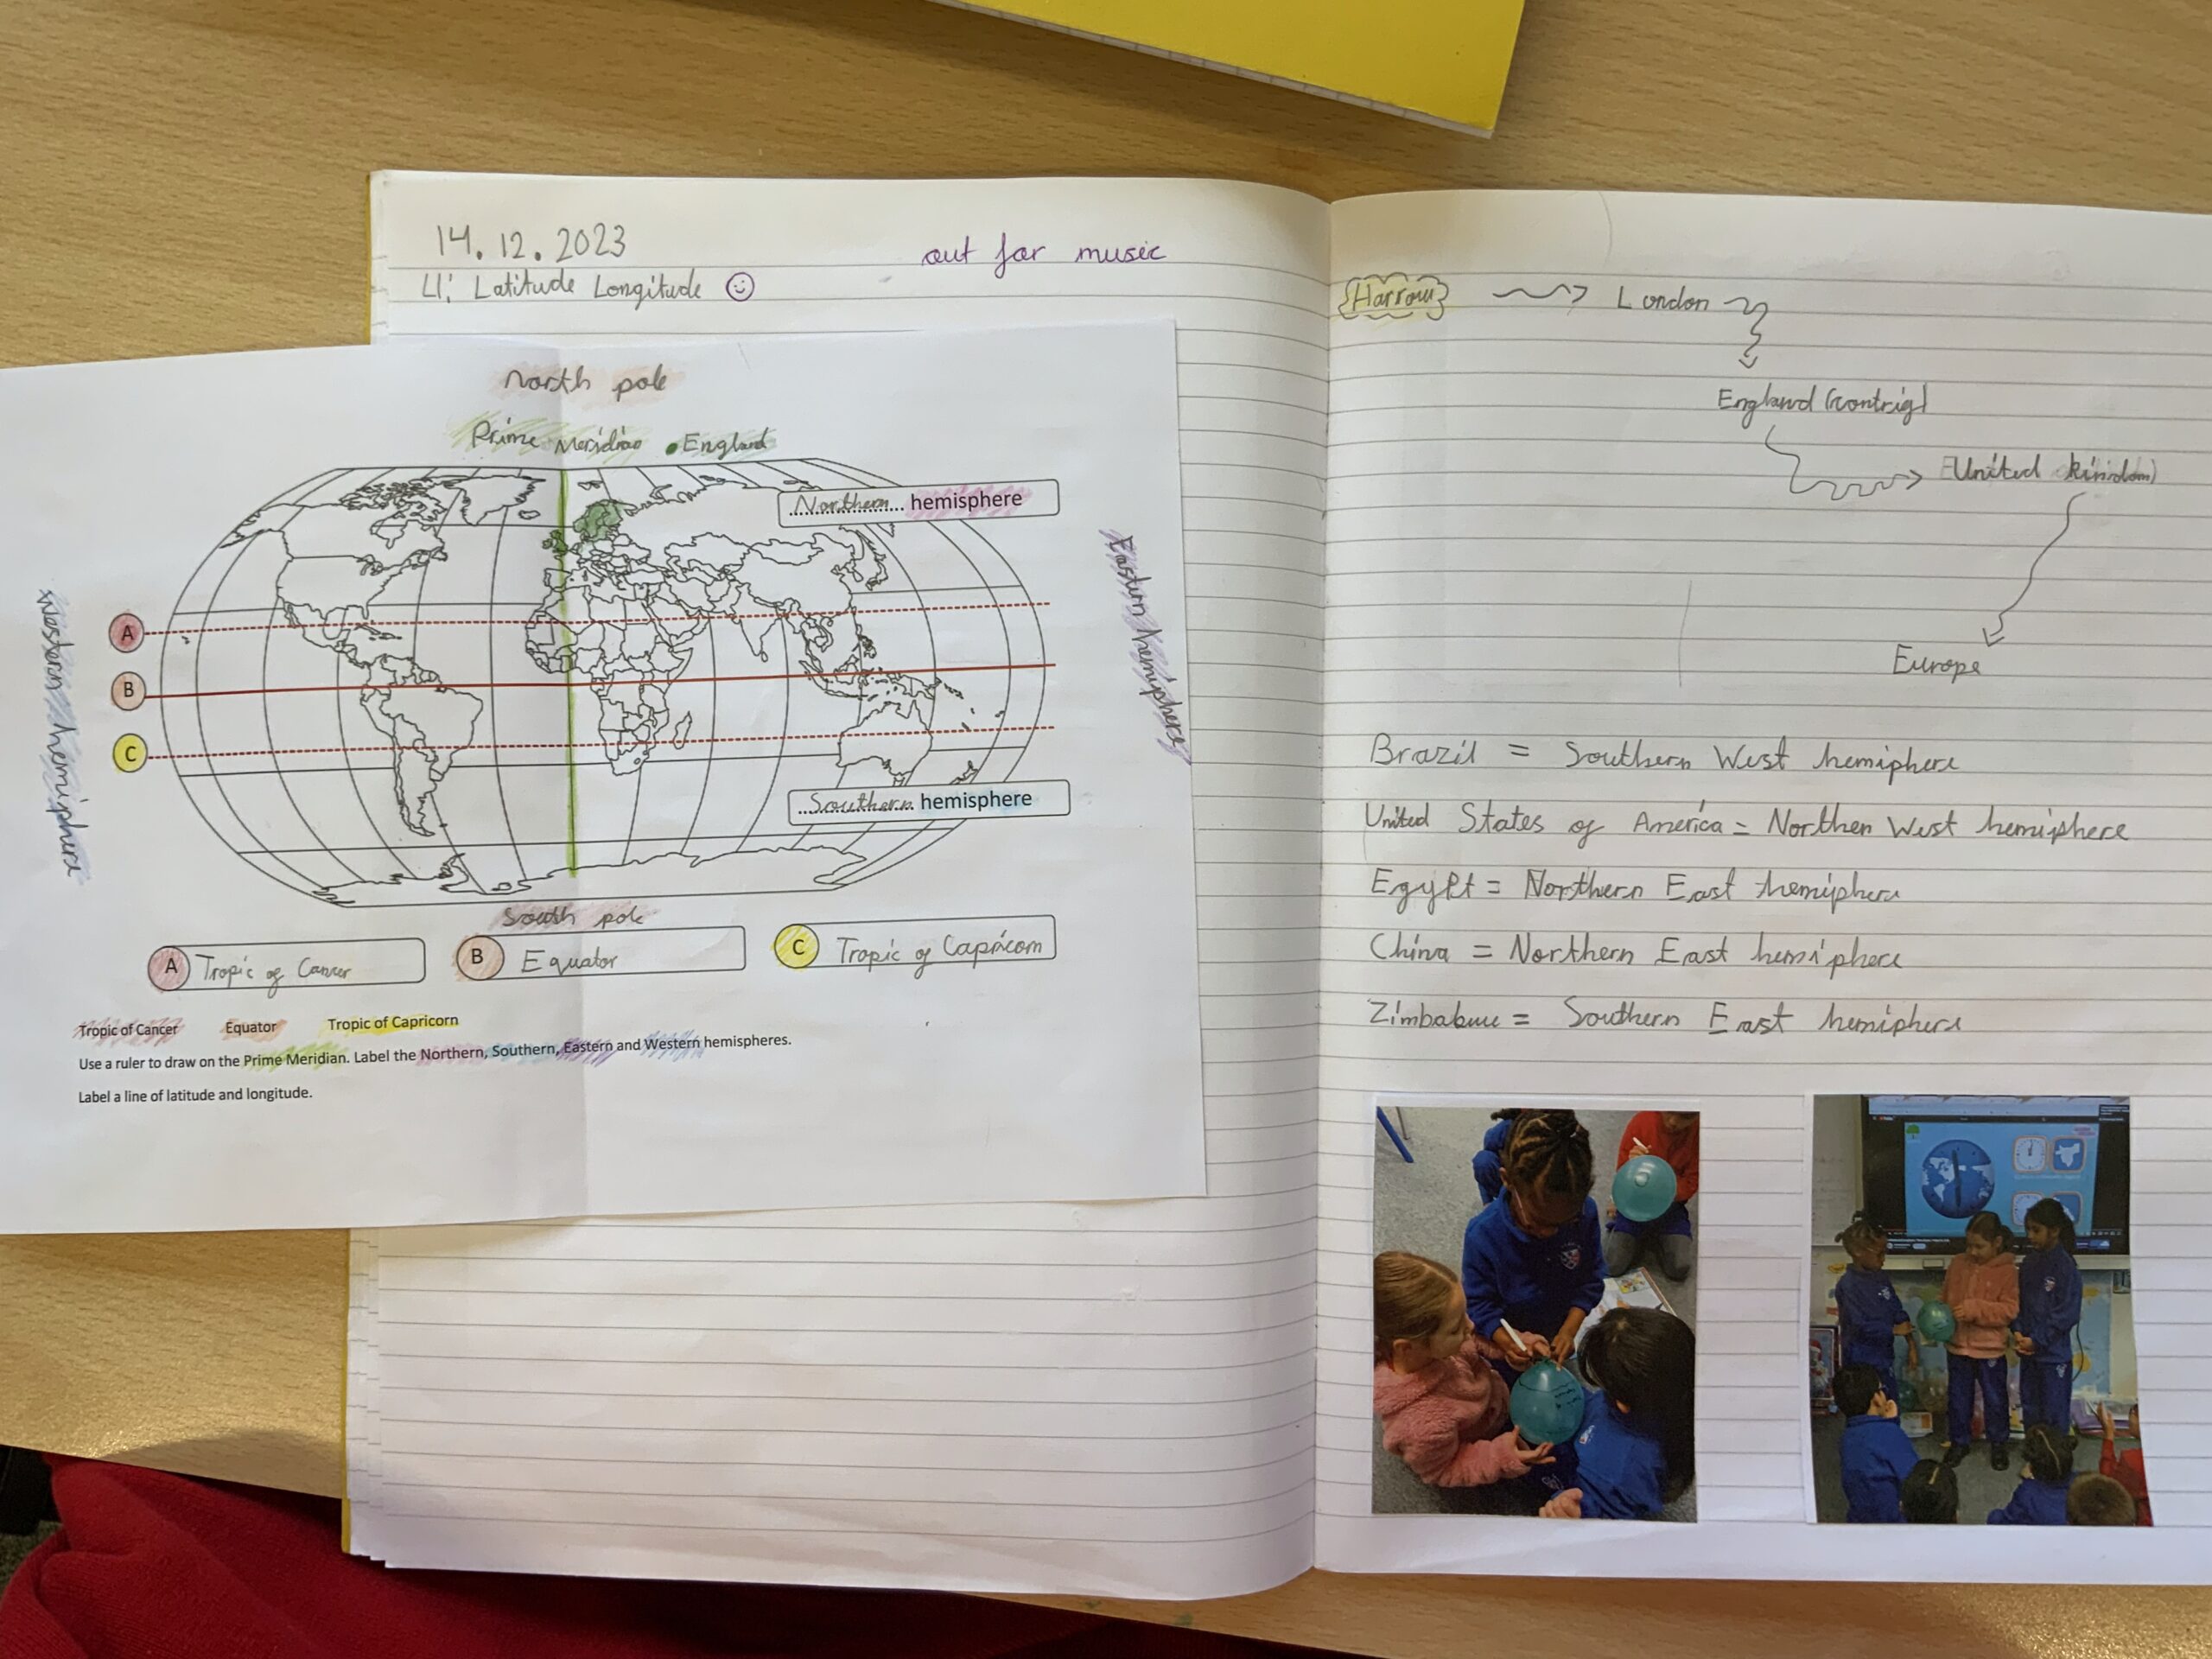 14.12.2023
out for music
LI: Latitude Longitude
North pole
Prime Meridian England
Northern hemisphere
Western hemiphere
Eastern hemiphere
A
B
C
Southern hemisphere
South pole
A Tropic of Cancer
B Equator
C Tropic of Capricorn
Tropic of Cancer Equator Tropic of Capricorn
Use a ruler to draw on the Prime Meridian. Label the Northern, Southern, Eastern and Western hemispheres.
Label a line of latitude and longitude.
Harrow London
England
United kindom
Europe
Brazil = Southern West hemiphere
United States of America = Northen West hemisphere
Egypt = Northern East hemiphere
China = Northern East hemiphere
Zimbabwe = Southern East hemiphere